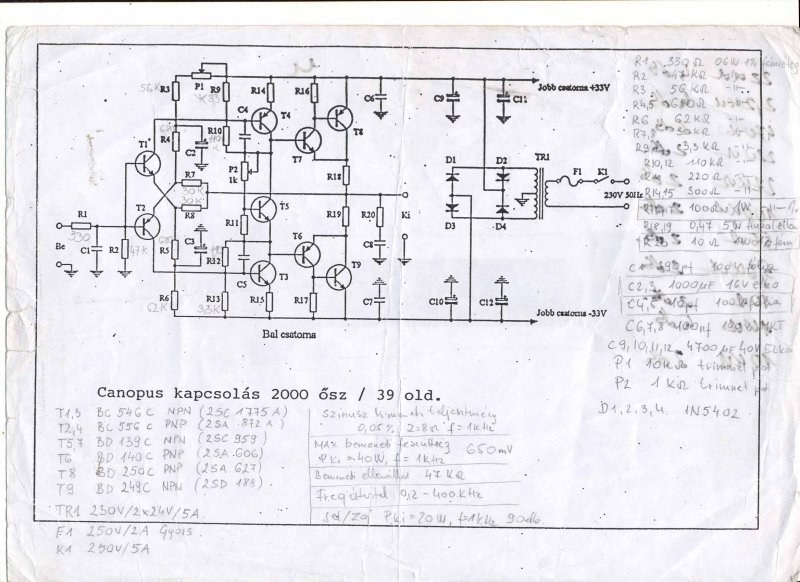 R1 330Ω 06W 1% fémréteg
R2 47KΩ
R3 56KΩ
R4,5 680Ω
R6 62KΩ
R7,8 30KΩ
R9 3,3KΩ
R10,12 110KΩ
220Ω
R14,15 300Ω
100Ω
R18,19 0,47 5W huzalelka
10Ω
C1 390pf 100V fólia
C2,3 1000µF 16V elko
C4,5 10pf 100V fólia
C6,7,8 100nf MKT
C9,10,11,12 4700µF 40V Elko
P1 10KΩ trimmet pot
P2 1KΩ trimmet pot
D1,2,3,4. 1N5402
R3
56K
P1
R9
K33
R14
R16
C6
C9
C11
Jobb csatorna +33V
T4
T8
C4
R10
T1
R4
680
C2
P2
1k
T7
R18
D1
D2
TR1
F1
K1
230V 50Hz
R7
30K
T2
R8
30K
T5
R11
R19
R20
Ki
D3
D4
R1
330
Be
C1
R2
47K
R5
680
C3
R12
T6
T3
C5
T9
C8
R6
62K
R13
3,3K
R15
R17
C7
C10
C12
Bal csatorna
Jobb csatorna -33V
Canopus kapcsolás 2000 ősz / 39 old.
T1,3 BC 546C NPN (2SC 1775A)
T2,4 BC 556C PNP (2SA 872A)
T5,7 BD 139C NPN (2SC 959)
T6 BD 140C PNP (2SA 606)
T8 BD 250C PNP (2SA 627)
T9 BD 249C NPN (2SD 188)
TR1 230V/2x24V/5A.
F1 250V/2A Gyors
K1 250V/5A
Szinusz kimeneti teljesítmény
0,05% Z=8Ω f=1kHz
MAX bemeneti feszültség
Pki=40W, f=1kHz 650mV
Bemeneti ellenállás 47KΩ
Freq átvitel 0,2-400kHz
Jel/Zaj Pki=20W, f=1kHz 90db